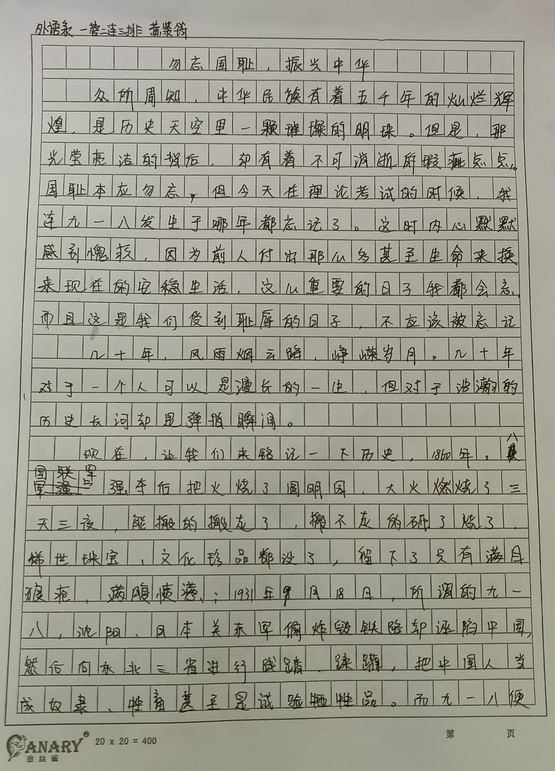 外语系 一营二连三排
勿忘国耻，振兴中华
众所周知，中华民族有着五千年的灿烂辉
煌，是历史天空里一颗璀璨的明珠。但是，那
光荣 洁的背后，却有着不可消逝 瑕疵点点。
国耻本应勿忘，但今天在理论考试的时候，我
连九一八发生于哪年都忘记了。这时内心默默
感到愧疚，因为前人付出那么多甚至生命来换
来现在的安稳生活，这么重要的日子我都会忘，
而且这是我们受到耻辱的日子，不应该被忘记
几十年，风雨烟云 ，峥嵘岁月。几十年
对于一个人可以是漫长的一生，但对于浩瀚的
历史长河却是弹指瞬间。
现在，让我们来铭记一下历史，1860年，八
国联军
强 后把火烧了圆明园，大火燃烧了三
天三夜，能搬的搬走了，搬不走的砸了烧了，
稀世珠宝、文化珍品都没了，留下了只有满目
狼疮，满腹愤懑；1931年9月18日，所谓的九一
八，沈阳，日本关东军偷炸毁铁路却诬陷中国，
然后向东北三省进行践踏、蹂躏，把中国人当
成奴隶、牲畜甚至是试验牺牲品。而九一八便
CANARY®
金丝雀
20 x 20 = 400
第 页